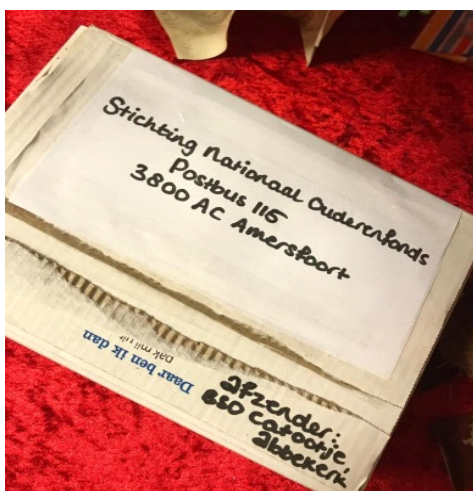 Stichting Nationaal Ouderenfonds
Postbus 115
3800 AC Amersfoort
Daar ben ik dan
pak mij uit
afzender:
BSO Catootje,
abbekerk